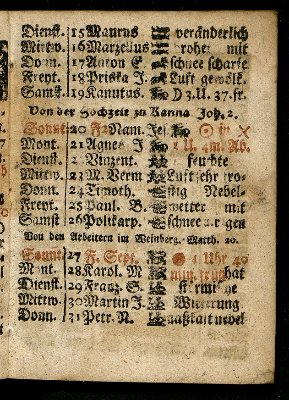 Dienst. 15 Maurus veränderlich
Mittw. 16 Marzellus mit
Donn. 17 Anton E. schnee scharfe
Freyt. 18 Priska J. Luft gewölk.
Samst. 19 Kanutus. D 3. U. 37. fr.
Von der Hochzeit zu Kanna Joh. 2.
Sonnt. 20 F2 Nam. Jes.
Mont. 21 Agnes J U. 4m. Ab.
Dienst. 2 Vinzent. feuchte
Mittw. 23 M. Verm Luft sehr
Donn. 24 Timoth. Nebel-
Freyt. 25 Paul. B. wetter mit
Samst 26 Polikarp. schnee
Von den Arbeitern im Weinberg. Matth. 20.
Sonnt 27 F. Sept. 1 Uhr 49
Mont. 28 Karol. M min. hat
Dienst. 29 Franz. S.
Mittw. 30 Martin J. Witterung
Donn. 31 Petr. N. naßkalt nebel